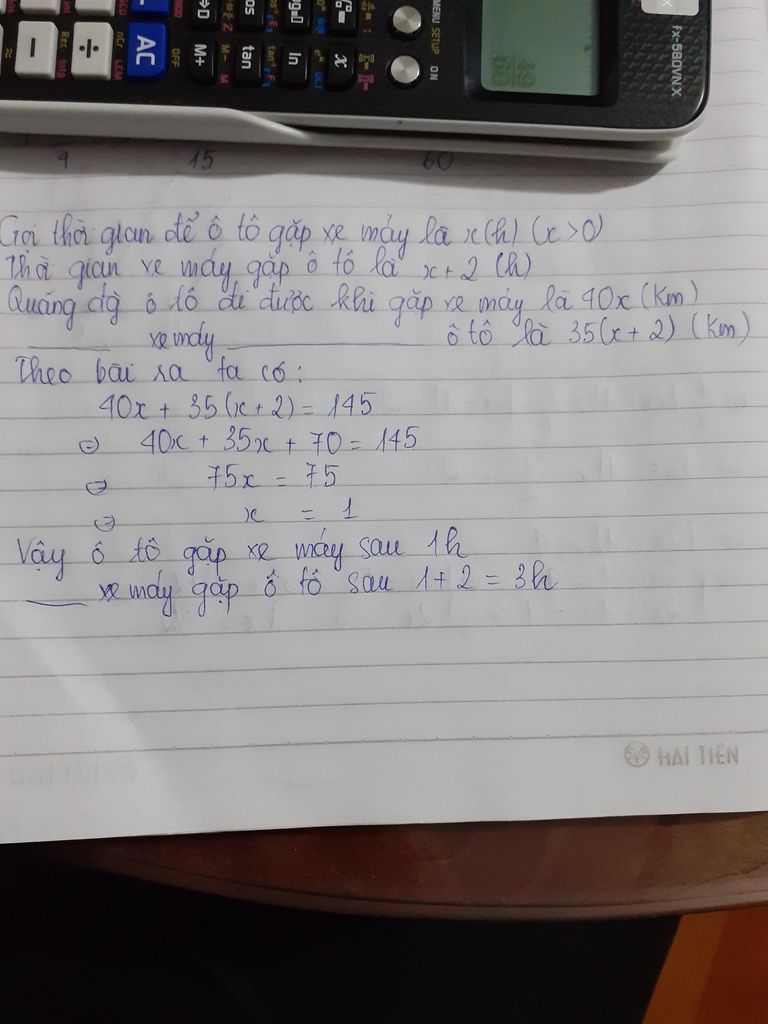 MENU SETUP ON
fx-580VN X
OFF
AC
÷
−
M+
tan
ln
x
9 15 60
Gọi thời gian để ô tô gặp xe máy là x(h) (x>0)
Thời gian xe máy gặp ô tô là x+2 (h)
Quãng đg ô tô đi được khi gặp xe máy là 40x (Km)
xe máy ô tô là 35(x+2) (Km)
Theo bài ra ta có:
40x + 35(x+2) = 145
⇔ 40x + 35x + 70 = 145
⇔ 75x = 75
⇔ x = 1
Vậy ô tô gặp xe máy sau 1h
xe máy gặp ô tô sau 1+2 = 3h
HẢI TIẾN